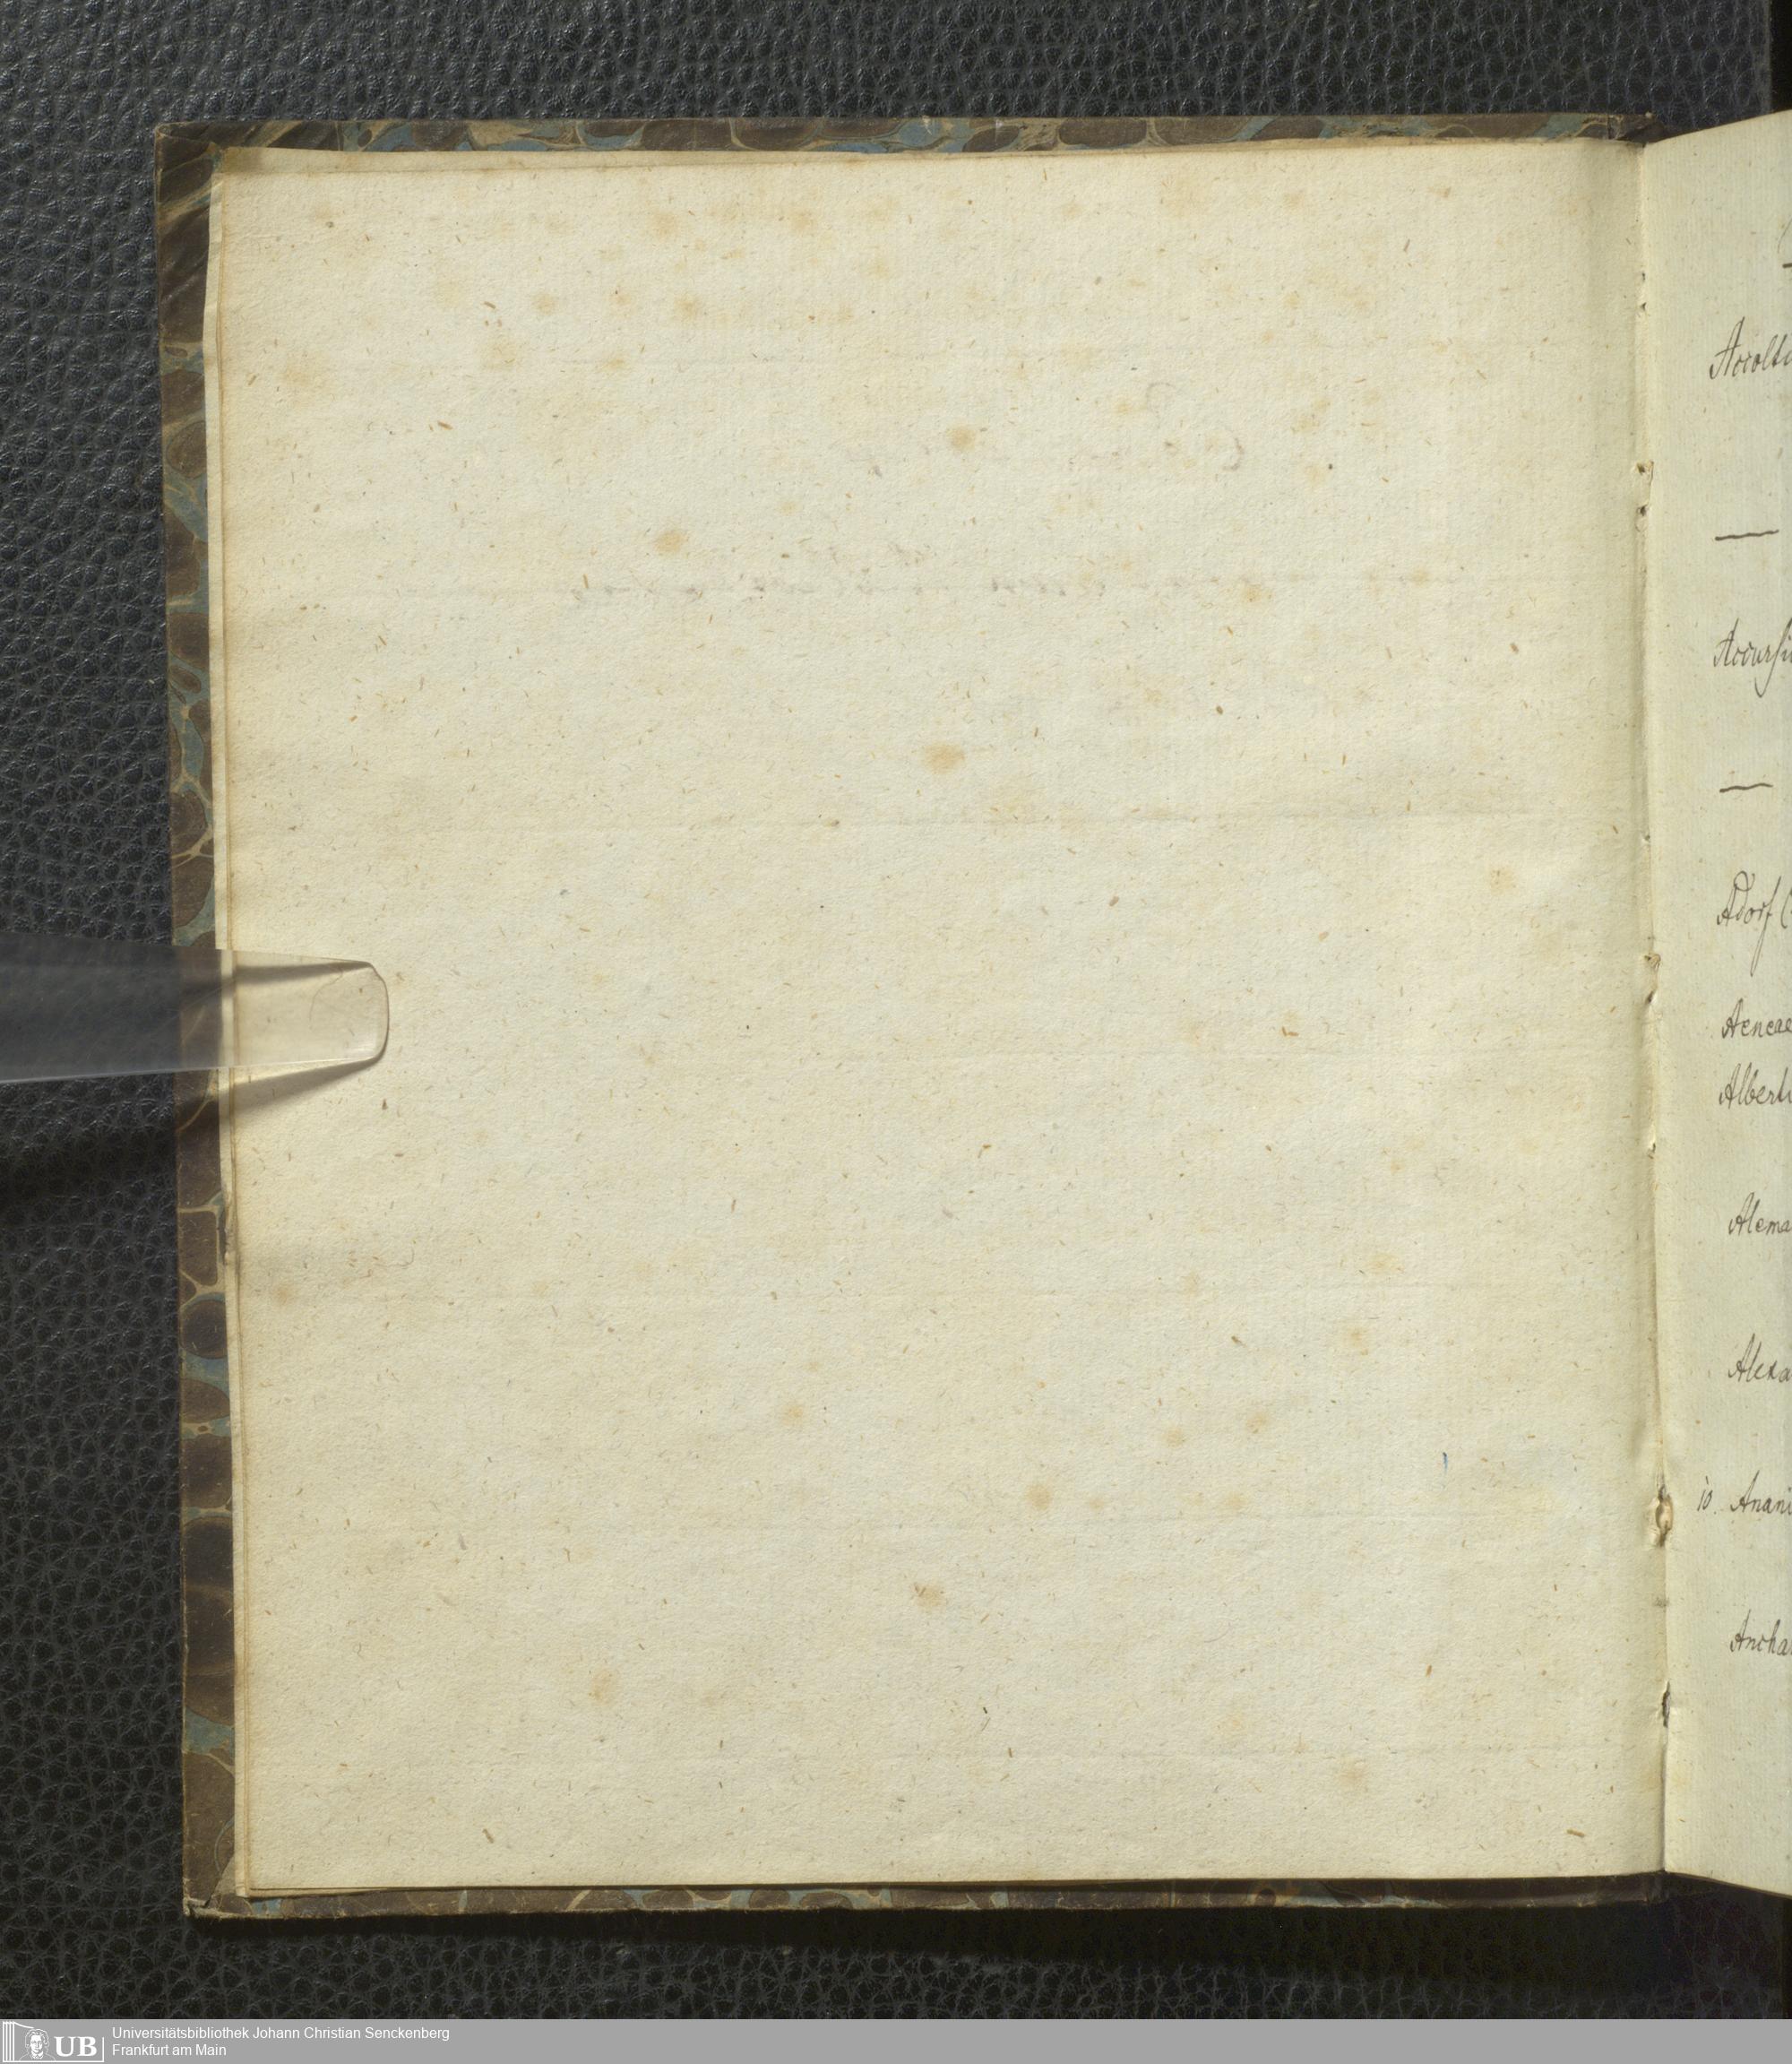 Accolti
—
Accursiu
—
Adorf (
Aeneae
Alberti
Alema
Alexa
10. Anani
Ancha
UB
Universitätsbibliothek Johann Christian Senckenberg
Frankfurt am Main